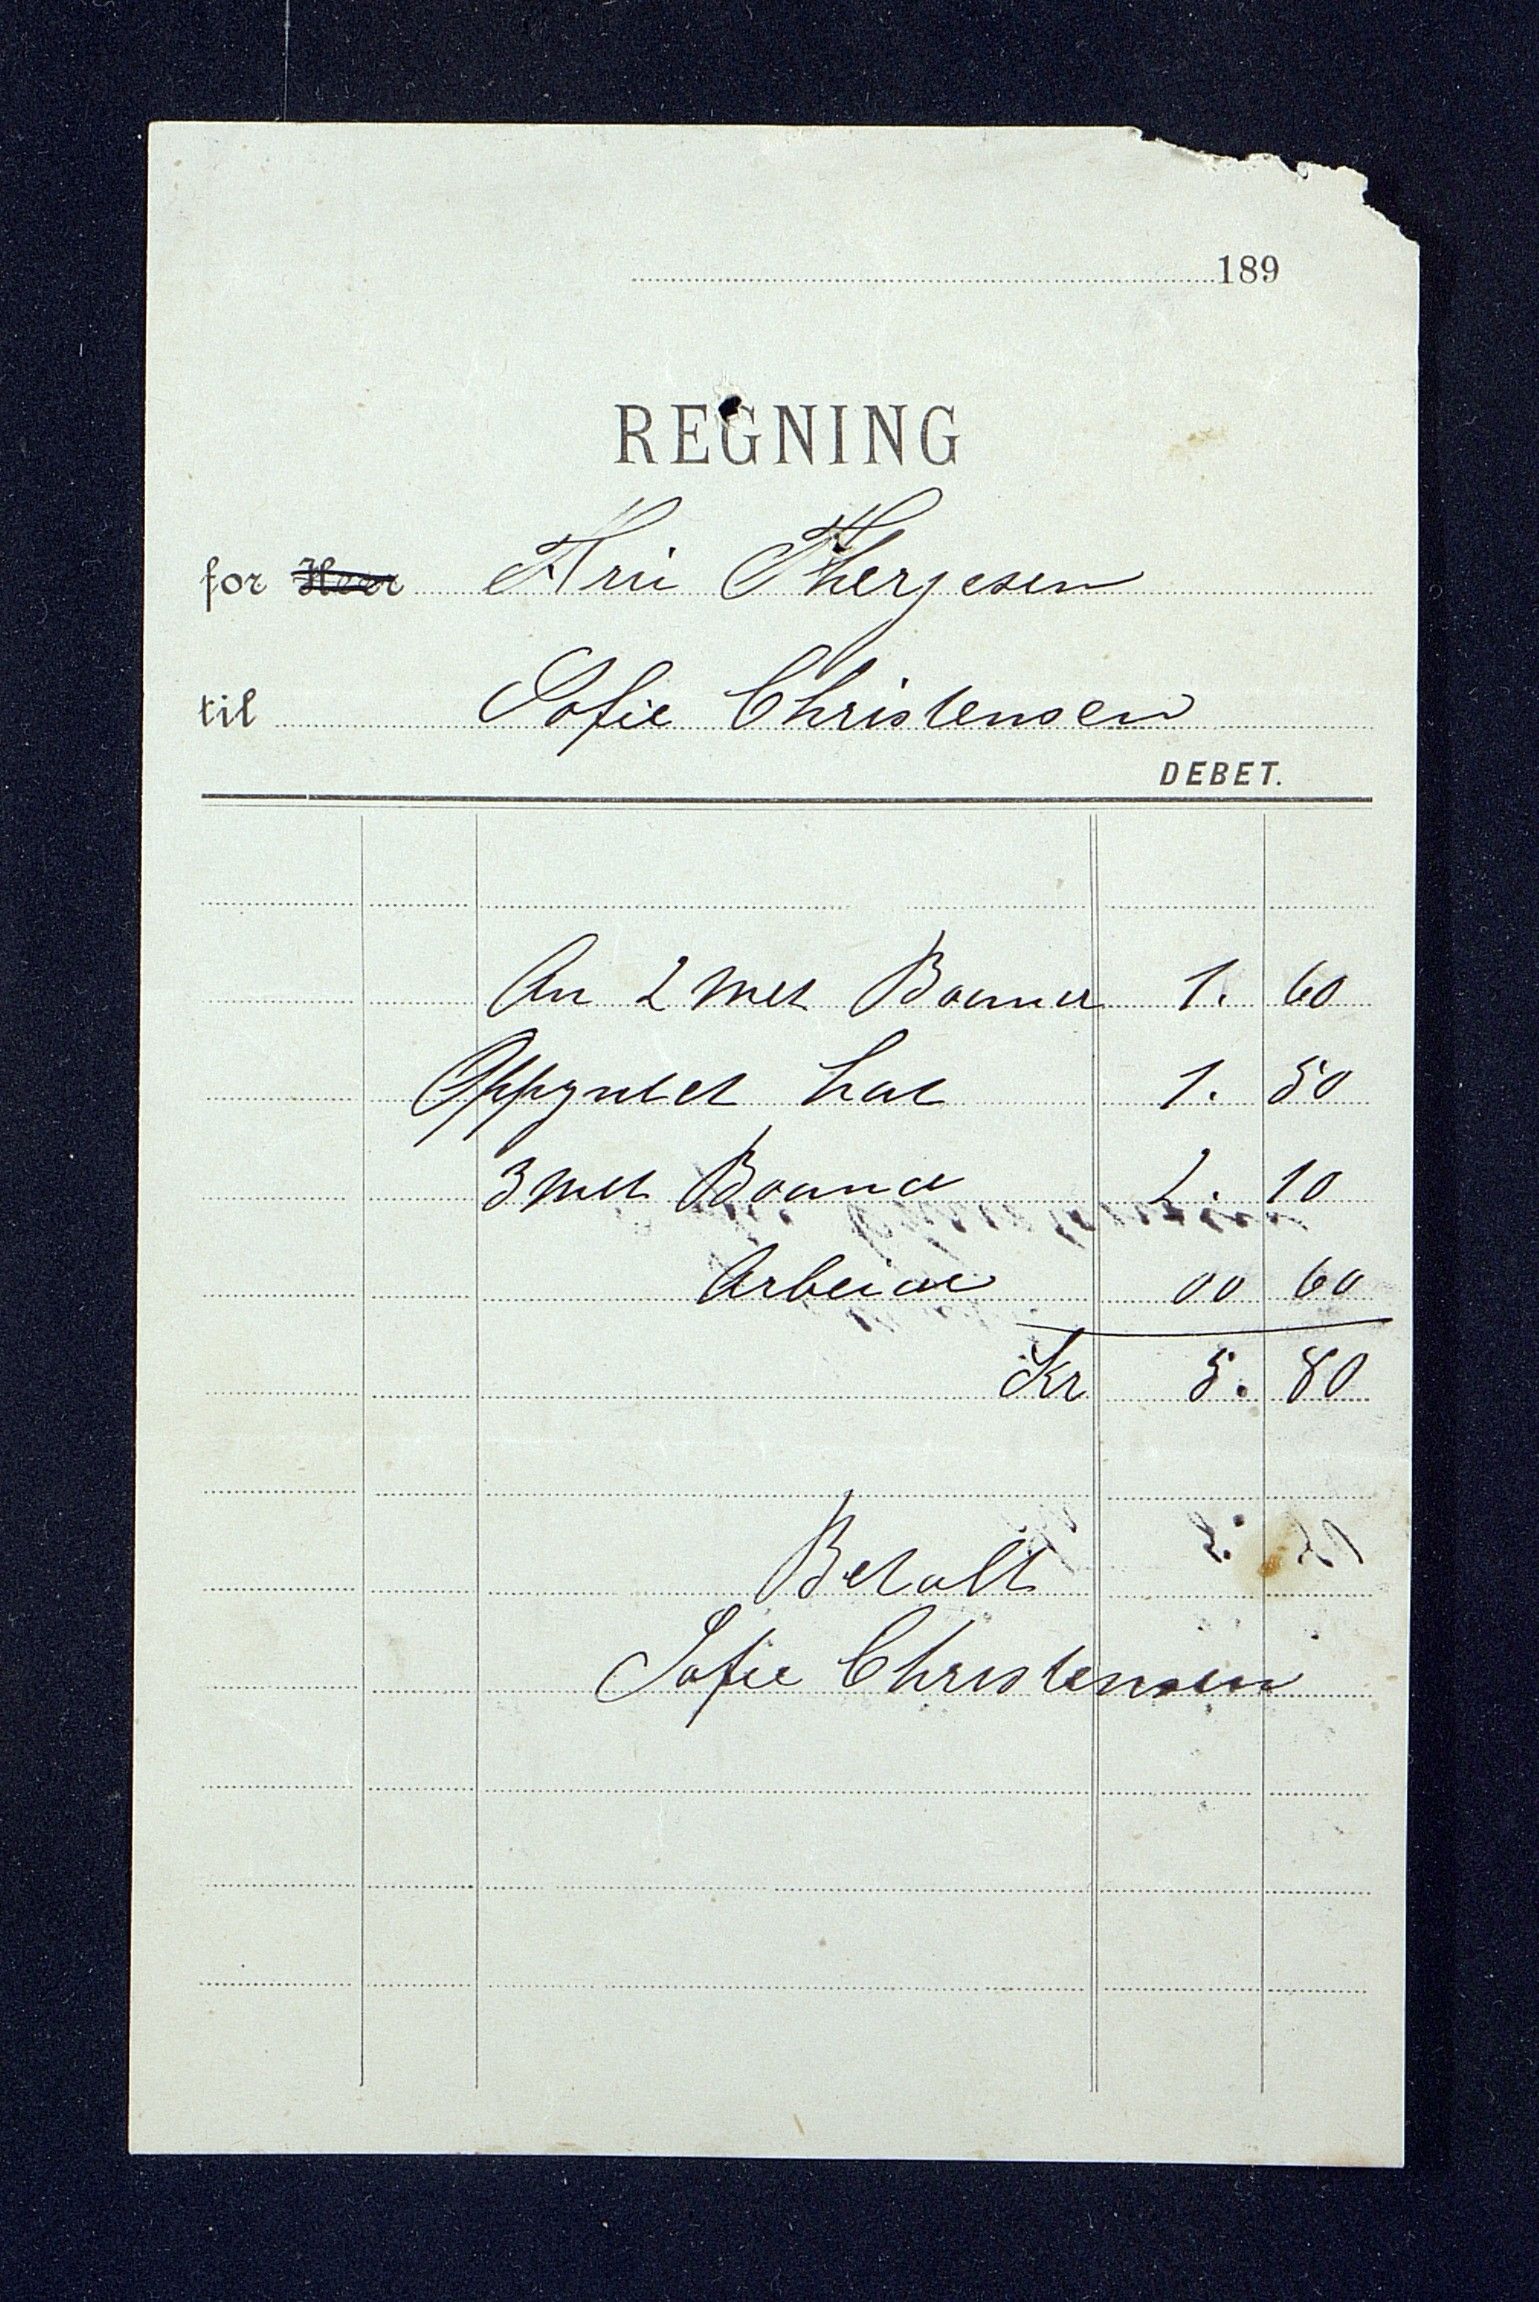 189
REGNING
for Herr Fru Therjesen
til Sofie Christensen
DEBET.
An 2 met Baand 1. 60
Oppyntet hat 1. 50
3 met Baand 2. 10
Arbeide 00 60
Kr 5. 80
Betalt
Sofie Christensen